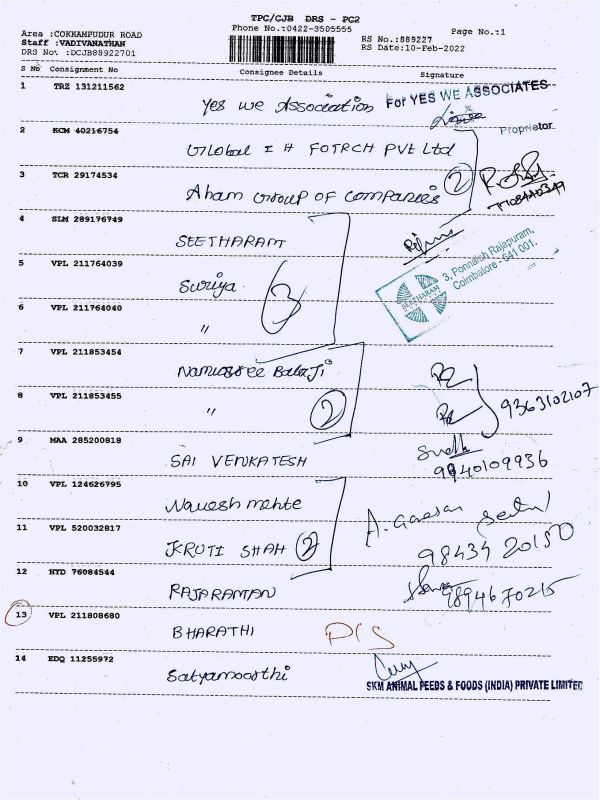 TPC/CJB DRS - PG2
Phone No.:0422-3505555
Page No.:1
Area :COKKAMPUDUR ROAD
Staff :VADIVANATHAN
DRS No. :DCJB88922701
RS No.:889227
RS Date:10-Feb-2022
S No Consignment No Consignee Details Signature
1 TRZ 131211562 Yes we Association For YES WE ASSOCIATES
Proprietor
2 KCM 40216754 Global I H FOTRCH PVT Ltd
3 TCR 29174534 Aham Group OF Companies 2
4 SLM 289176749 SEETHARAM
SEETHARAM 3, Ponnaiah Rajapuram,
Coimbatore - 641 001.
5 VPL 211764039 Suriya 3
6 VPL 211764040 "
7 VPL 211853454 Balaji
8 VPL 211853455 " 2 9363102107
9 MAA 285200818 SAI VENKATESH
9940109936
10 VPL 124626795 mehte
11 VPL 520032817 KRUTI SHAH 2 98434 20150
12 HYD 76084544 RAJARAMAN 9894670215
13 VPL 211808680 BHARATHI
14 EDQ 11255972 Satyamoorthi
SKM ANIMAL FEEDS & FOODS (INDIA) PRIVATE LIMITED